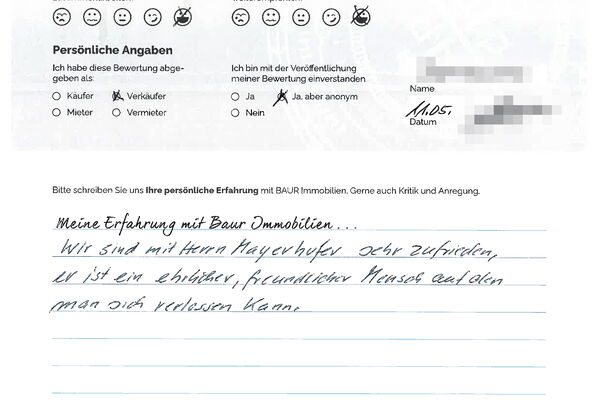 Persönliche Angaben
Ich habe diese Bewertung abge-
geben als:
Käufer
Verkäufer
Mieter
Vermieter
Ich bin mit der Veröffentlichung
meiner Bewertung einverstanden.
Ja
Ja, aber anonym
Nein
Name
11.05.
Datum
Bitte schreiben Sie uns Ihre persönliche Erfahrung mit BAUR Immobilien. Gerne auch Kritik und Anregung.
Meine Erfahrung mit Baur Immobilien...
Wir sind mit Herrn Mayerhofer sehr zufrieden,
er ist ein ehrlicher, freundlicher Mensch auf den
man sich verlassen kann.